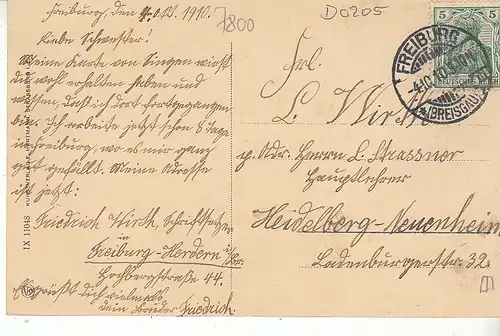 Freiburg, den 4. Okt. 1910.
7800
D0205
Liebe Schwester!
Meine Karte von Singen wirst
du wohl erhalten haben und
wissen, daß ich dort fortgegangen
bin. Ich arbeite jetzt schon 8 Tage
in Freiburg, wo es mir ganz
gut gefällt. Meine Adresse
ist jetzt:
Friedrich Wirth, Schriftsetzer
in
Freiburg-Herdern i/Br.
Hochbergstraße 44.
Es grüßt dich vielmals
dein Bruder Friedrich
IX 11048
5 5
DEUTSCHES REICH
FREIBURG
4.10.10
(BREISGAU)
Frl.
L. Wirth
p. Adr. Herrn L. Strassner
Hauptlehrer
Heidelberg-Neuenheim
Ladenburgerstr. 32